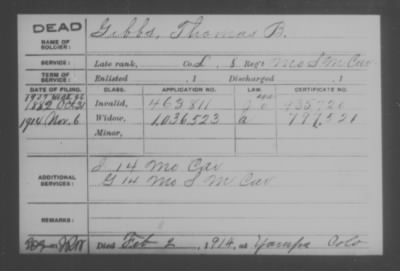 DEAD
NAME OF SOLDIER: Gibbs, Thomas B.
SERVICE: Late rank, Co. I, 8 Reg't Mo S M Cav
TERM OF SERVICE: Enlisted , 1 Discharged , 1
DATE OF FILING. CLASS. APPLICATION NO. LAW. CERTIFICATE NO.
1882 Oct 31 Invalid, 463811 435720
1914 Nov. 6 Widow, 1,036,523 a 797,521
Minor,
ADDITIONAL SERVICES: I 14 Mo Cav
G 14 Mo S M Cav
REMARKS:
Died Feb 2, 1914, at Yampa Colo